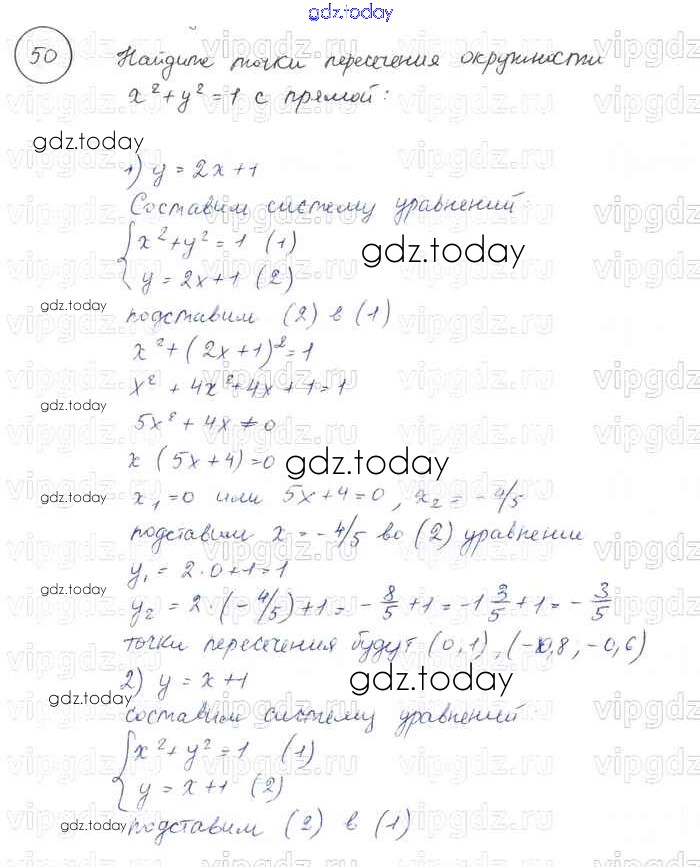 gdz.today
50 Найдите точки пересечения окружности
x² + y² = 1 с прямой:
gdz.today
1) y = 2x + 1
Составим систему уравнений
{ x² + y² = 1 (1)
gdz.today
y = 2x + 1 (2)
gdz.today
подставим (2) в (1)
x² + (2x + 1)² = 1
x² + 4x² + 4x + 1 = 1
gdz.today
5x² + 4x = 0
x (5x + 4) = 0
gdz.today
x₁ = 0 или 5x + 4 = 0, x₂ = -4/5
gdz.today
подставим x = -4/5 во (2) уравнение
y₁ = 2·0 + 1 = 1
gdz.today
y₂ = 2·(-4/5) + 1 = -8/5 + 1 = -1 3/5 + 1 = -3/5
точки пересечения будут (0, 1), (-0,8, -0,6)
2) y = x + 1
gdz.today
gdz.today
составим систему уравнений
{ x² + y² = 1 (1)
y = x + 1 (2)
gdz.today
подставим (2) в (1)
vipgdz.ru